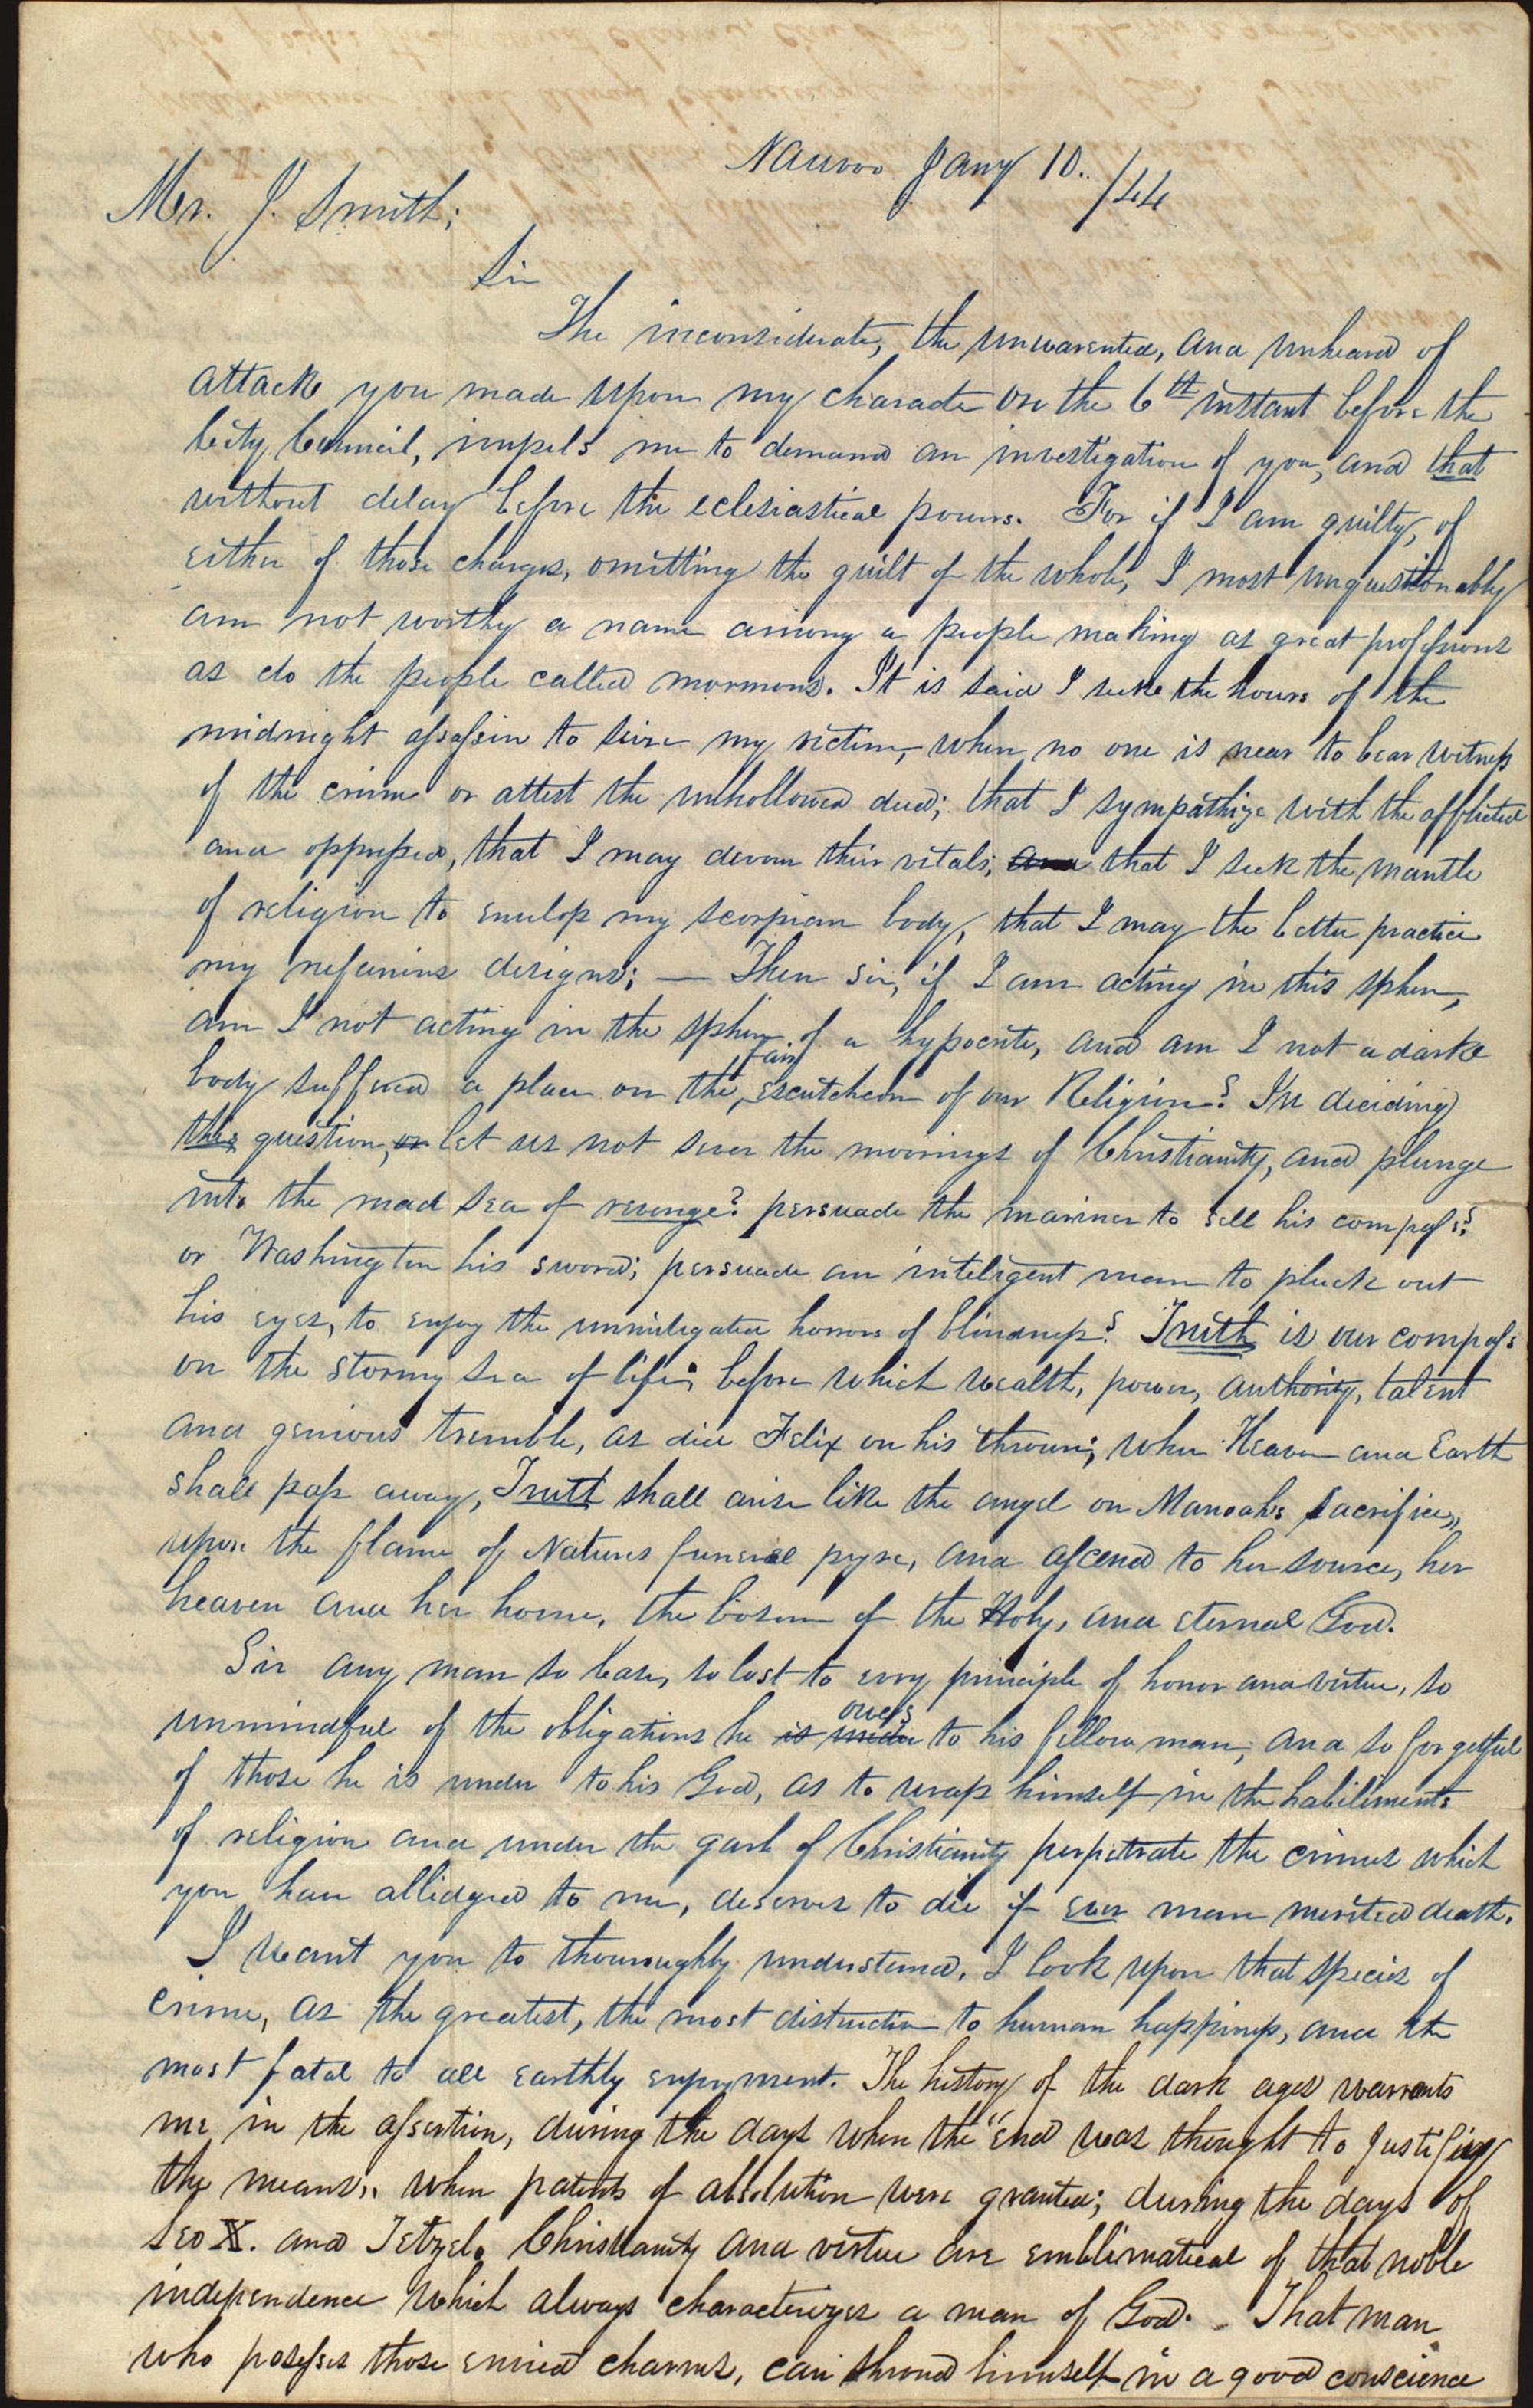 Nauvoo Jany 10. /44
Mr. J. Smith;
Sir
The inconsiderate, the unwarented, and unheard of
attack you made upon my character on the 6th instant before the
City Council, impels me to demand an investigation of you, and that
without delay before the eclesiastical powers. For if I am guilty, of
either of those charges, omitting the guilt of the whole, I most unquestionably
am not worthy a name among a people making as great professions
as do the people called mormons. It is said I seeke the hours of the
midnight assassin to seize my victim, when no one is near to bear witness
of the crime or attest the unhollowed deed; that I sympathize with the afflicted
and oppressed, that I may devour their vitals; and that I seek the mantle
of religion to envelop my scorpian body, that I may the better practice
my nefarious designs; — Then sir, if I am acting in this sphere,
am I not acting in the sphere of a hypocrite, and am I not a darke
body suffered a place on the fair escutcheon of our Religion? In deciding
this question, or let us not sever the moorings of Christianity, and plunge
into the mad sea of revenge? persuade the mariner to sell his compass?
or Washington his sword; persuade an inteligent man to pluck out
his eyes, to enjoy the unmitigated horrors of blindness? Truth is our compass
on the stormy sea of life; before which wealth, power, authority, talent
and genious tremble, as did Felix on his throne; when Heaven and Earth
shall pass away, Truth shall arise like the angel on Manoahs sacrifice,
upon the flame of Natures funeral pyre, and ascend to her source, her
heaven and her home, the bosom of the Holy, and eternal God.
Sir any man so base, so lost to evry principle of honor and virtue, so
unmindful of the obligations he is under owes to his fellow man, and so forgetful
of those he is under to his God, as to wrap himself in the habiliments
of religion and under the garb of Christianity perpetrate the crimes which
you have allidged to me, deserves to die if ever man merited death.
I want you to thouroughly understand, I look upon that species of
crime, as the greatest, the most distructive to human happiness, and the
most fatal to all earthly enjoyment. The history of the dark ages warrants
me in the assertion, during the days when the "end was thought to justify
the means", when patents of absolution were granted; during the days of
Leo X. and Tetzel. Christianity and virtue are emblematical of that noble
independence which always characterizes a man of God. That man
who possesses those envied charms, can shroud himself in a good conscience